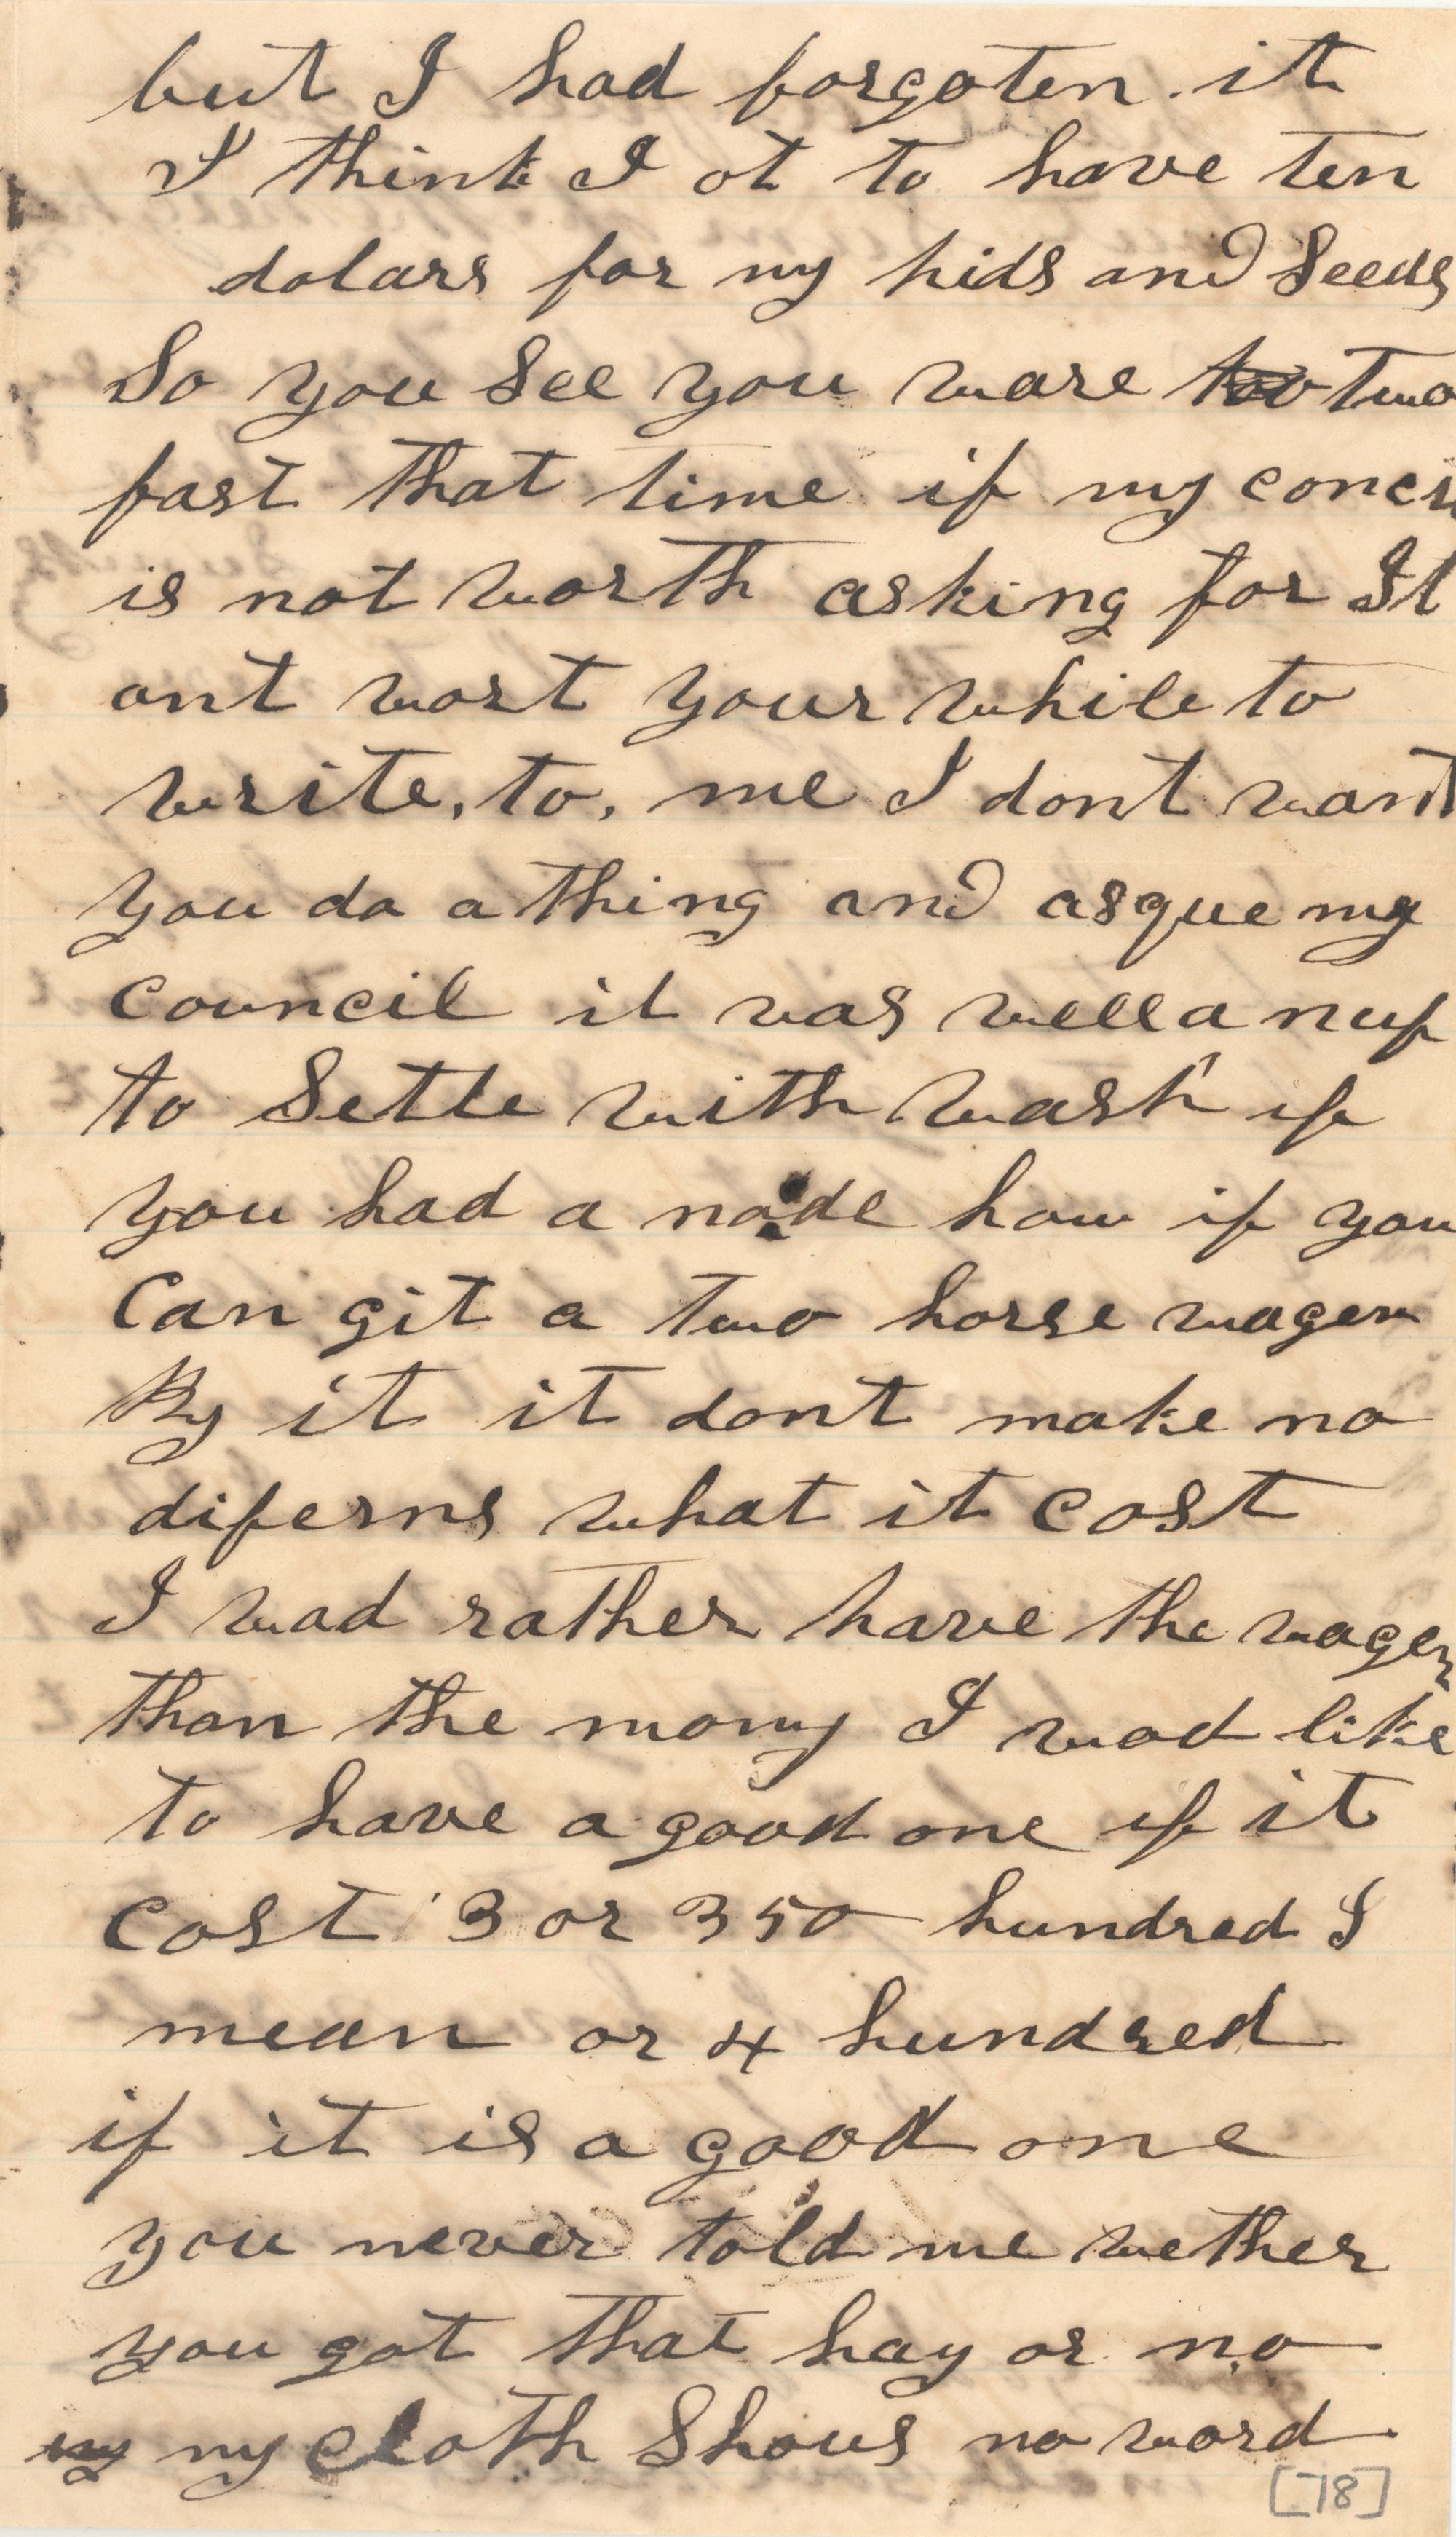 but I had forgoten it
I think I ot to have ten
dolars for my hids and Seeds
So you See you ware too two
fast that time if my
is not worth asking for It
ant wort your while to
write, to, me I dont want
you do a thing and asque my
council it was well a nuf
to Settle with wash if
you had a node how if you
Can git a two horse wagen
By it it dont make no
diferns what it cost
I wad rather have the wagen
than the mony I wod like
to have a good one if it
cost 3 or 350 hundred I
mean or 4 hundred
if it is a good one
you never told me wether
you got that hay or no
my my cloth Shous no word
[78]